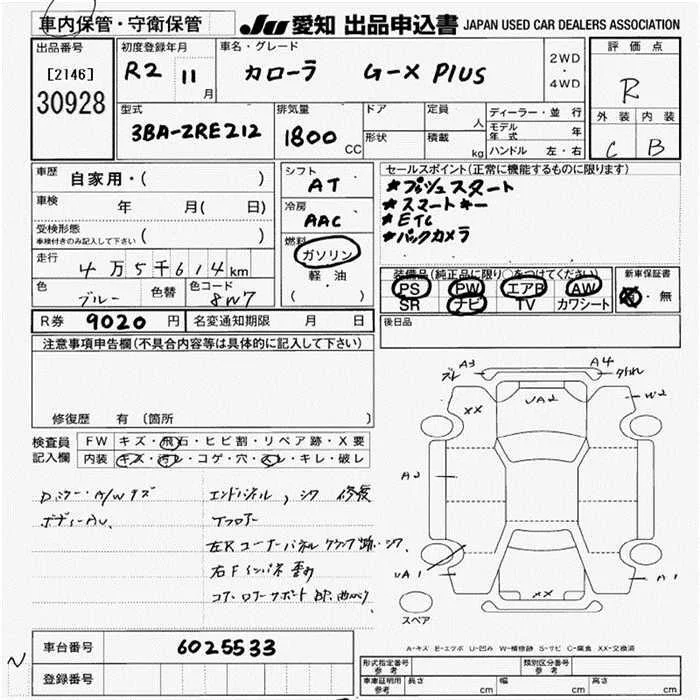 車内保管・守衛保管
JU 愛知 出品申込書 JAPAN USED CAR DEALERS ASSOCIATION
出品番号
[2146]
30928
初度登録年月
R2 11月
車名・グレード
カローラ G-X PLUS
2WD
・
4WD
評価点
R
外装 内装
C B
型式
3BA-ZRE212
排気量
1800 CC
ドア
形状
定員 人
積載 kg
ディーラー・並行
モデル年式 年
ハンドル 左・右
車歴 自家用・( )
車検 年 月( 日)
受検形態
車検付きのみ記入して下さい ( )
走行
4万5千614km
色 ブルー 色替 色コード 8W7
シフト
AT
冷房
AAC
燃料
ガソリン
軽油
( )
セールスポイント(正常に機能するものに限ります)
★プッシュスタート
★スマートキー
★ETC
★バックカメラ
装備品(純正品に限り○をつけてください)
PS PW エアB AW
SR ナビ TV カワシート
新車保証書
有・無
後日品
R券 9020円 名変通知期限 月 日
注意事項申告欄(不具合内容等は具体的に記入して下さい)
修復歴 有 〔箇所 〕
検査員記入欄
FW キズ・飛石・ヒビ割・リペア跡・X要
内装 キズ・汚レ・コゲ・穴・スレ・キレ・破レ
Dミラー・A/Wキズ
ボディーAU
エンドパネル、シワ 修復
左Rコーナーパネル
右Fインパネ
A3
A4
ズレ
XX
UA2
W2
A2
UA1
A1
XX
スペア
A-キズ E-エクボ U-凹み W-補修跡 S-サビ C-腐食 XX-交換済
車台番号 6025533
登録番号
N
形式指定番号 参考
類別区分番号 参考
車庫証明用 参考 長さ cm 幅 cm 高さ cm